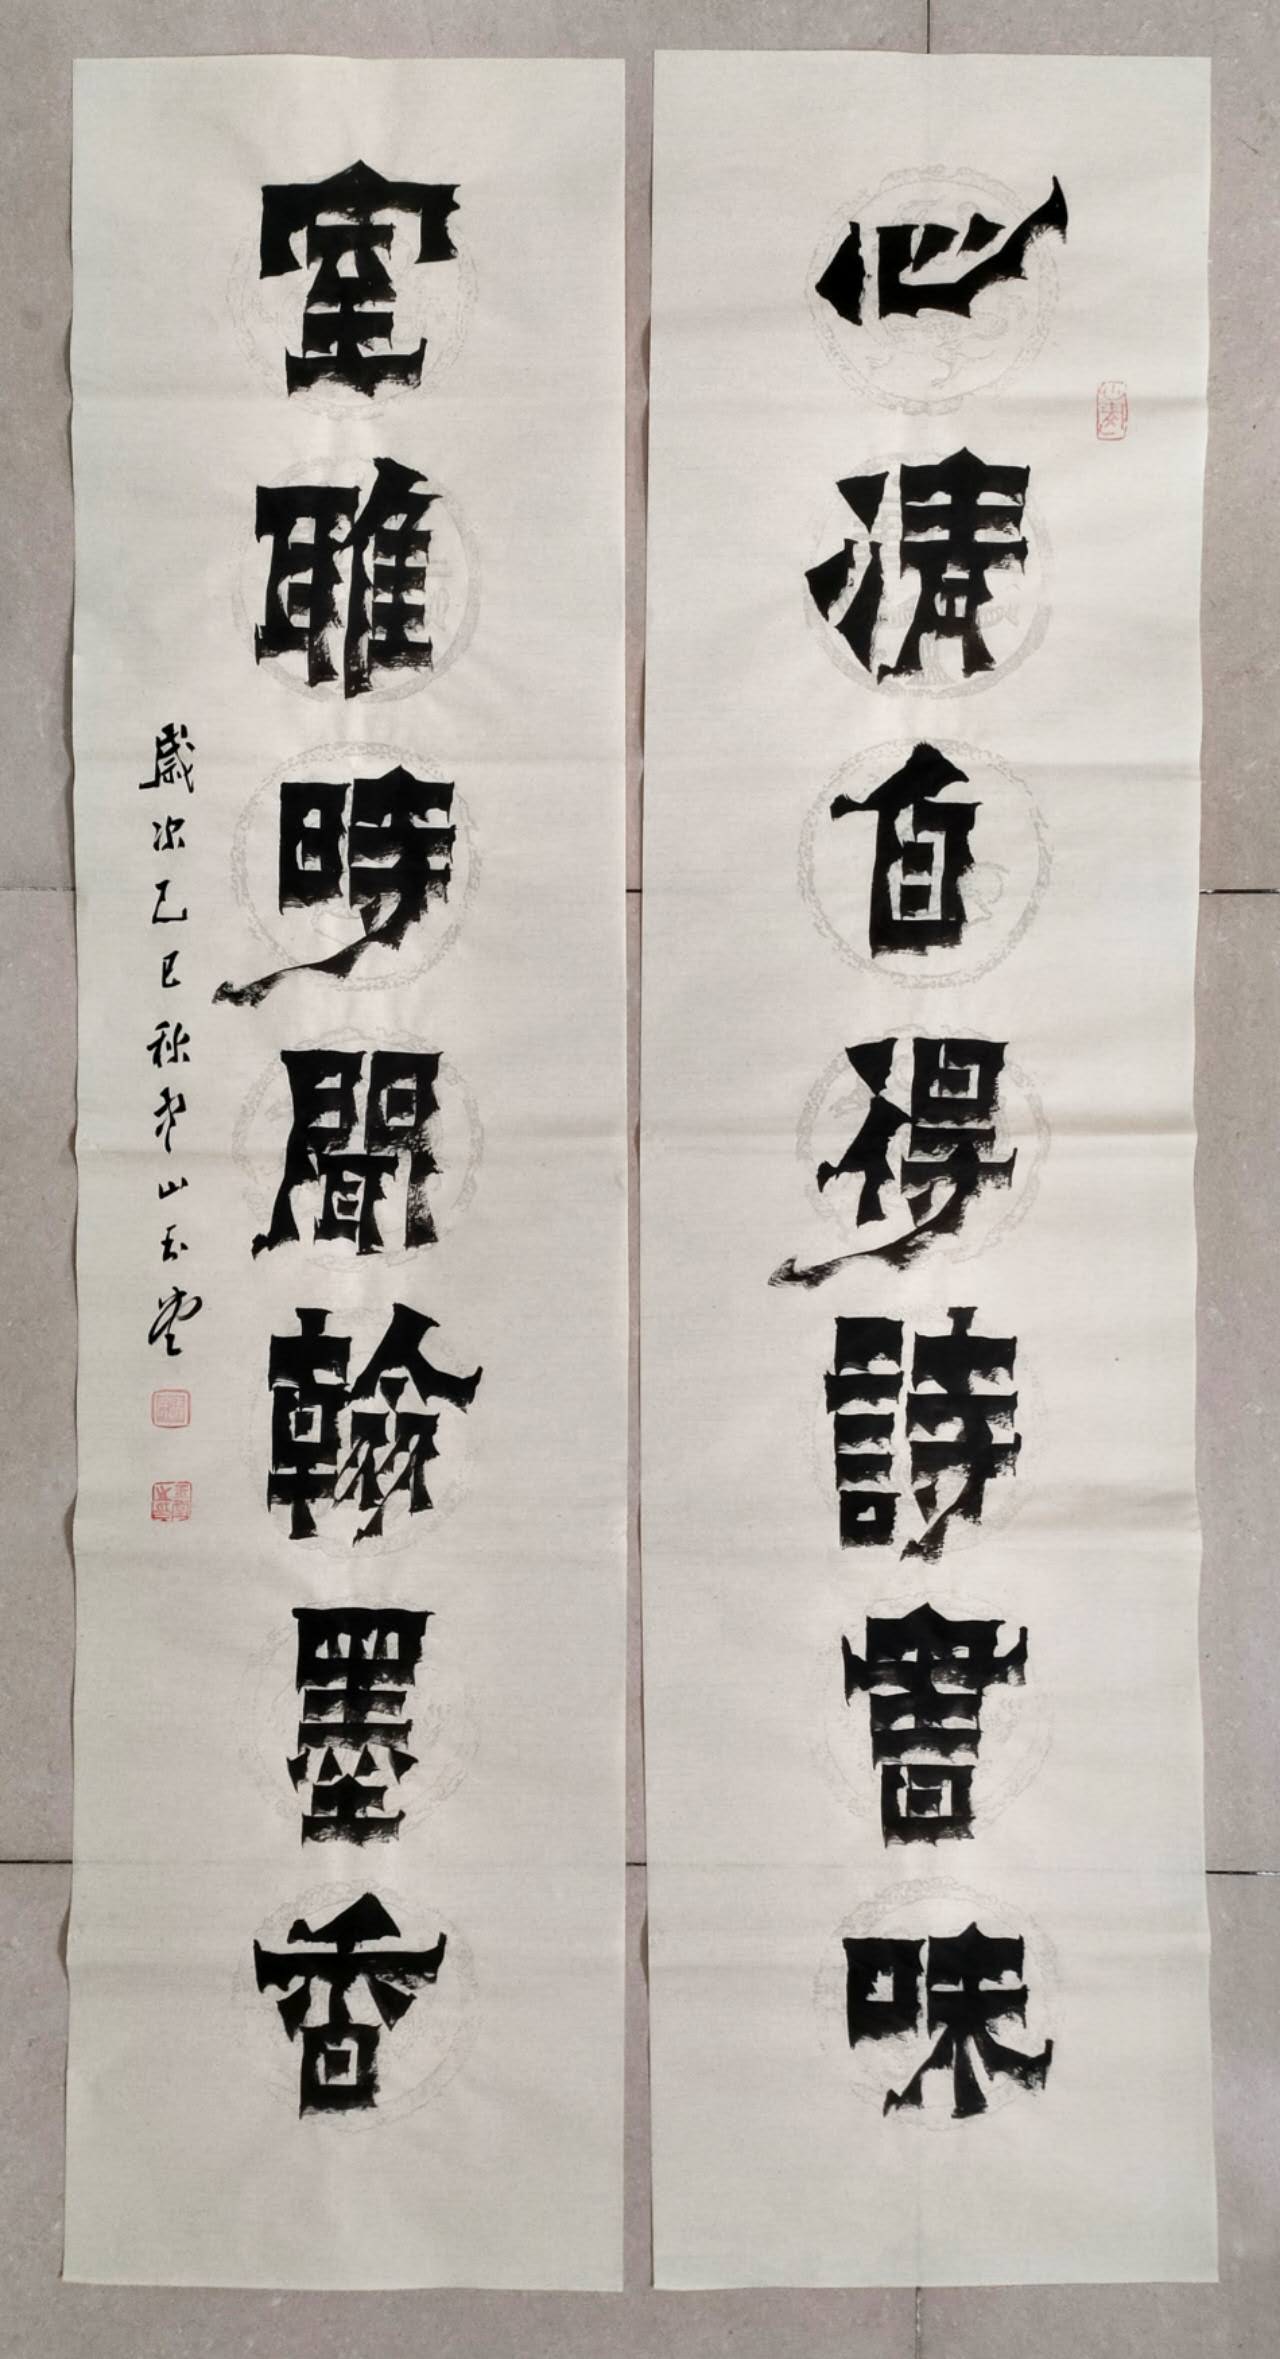 心清自得詩書味
室雅時聞翰墨香
歲次乙巳秋
山玉堂